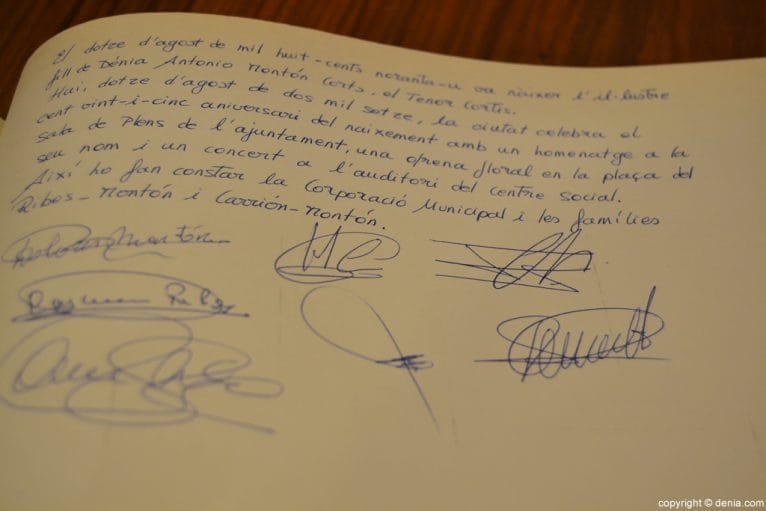 El dotze d'agost de mil huit-cents noranta-u va nàixer l'il·lustre
fill de Dénia Antonio Montón Corts, el Tenor Cortis.
Hui, dotze d'agost de dos mil setze, la ciutat celebra el
cent vint-i-cinc aniversari del naixement amb un homenatge a la
sala de Plens de l'ajuntament, una ofrena floral en la plaça del
seu nom i un concert a l'auditori del centre social.
Així ho fan constar la Corporació Municipal i les famílies
Ribes-Montón i Carrión-Montón.
copyright © denia.com